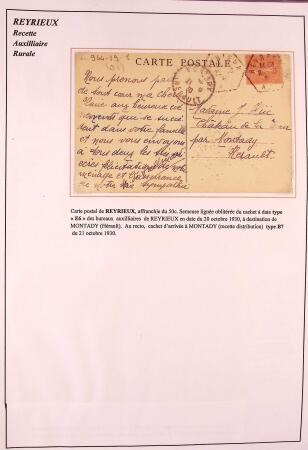 REYRIEUX
Recette
Auxilliaire
Rurale
CARTE POSTALE
Nous prenons part
de tout cœur ma chère
aux heureux évé
nements qui se succè
dent dans votre famille
et nous vous envoyons
à tous deux les
Madame J.
Château de la
par Montady
Hérault
Carte postal de REYRIEUX, affranchie du 50c. Semeuse lignée oblitérée du cachet à date type
« E6 » des bureaux auxilliaires de REYRIEUX en date du 20 octobre 1930, à destination de
MONTADY (Hérault). Au recto, cachet d'arrivée à MONTADY (recette distribution) type B7
du 21 octobre 1930.